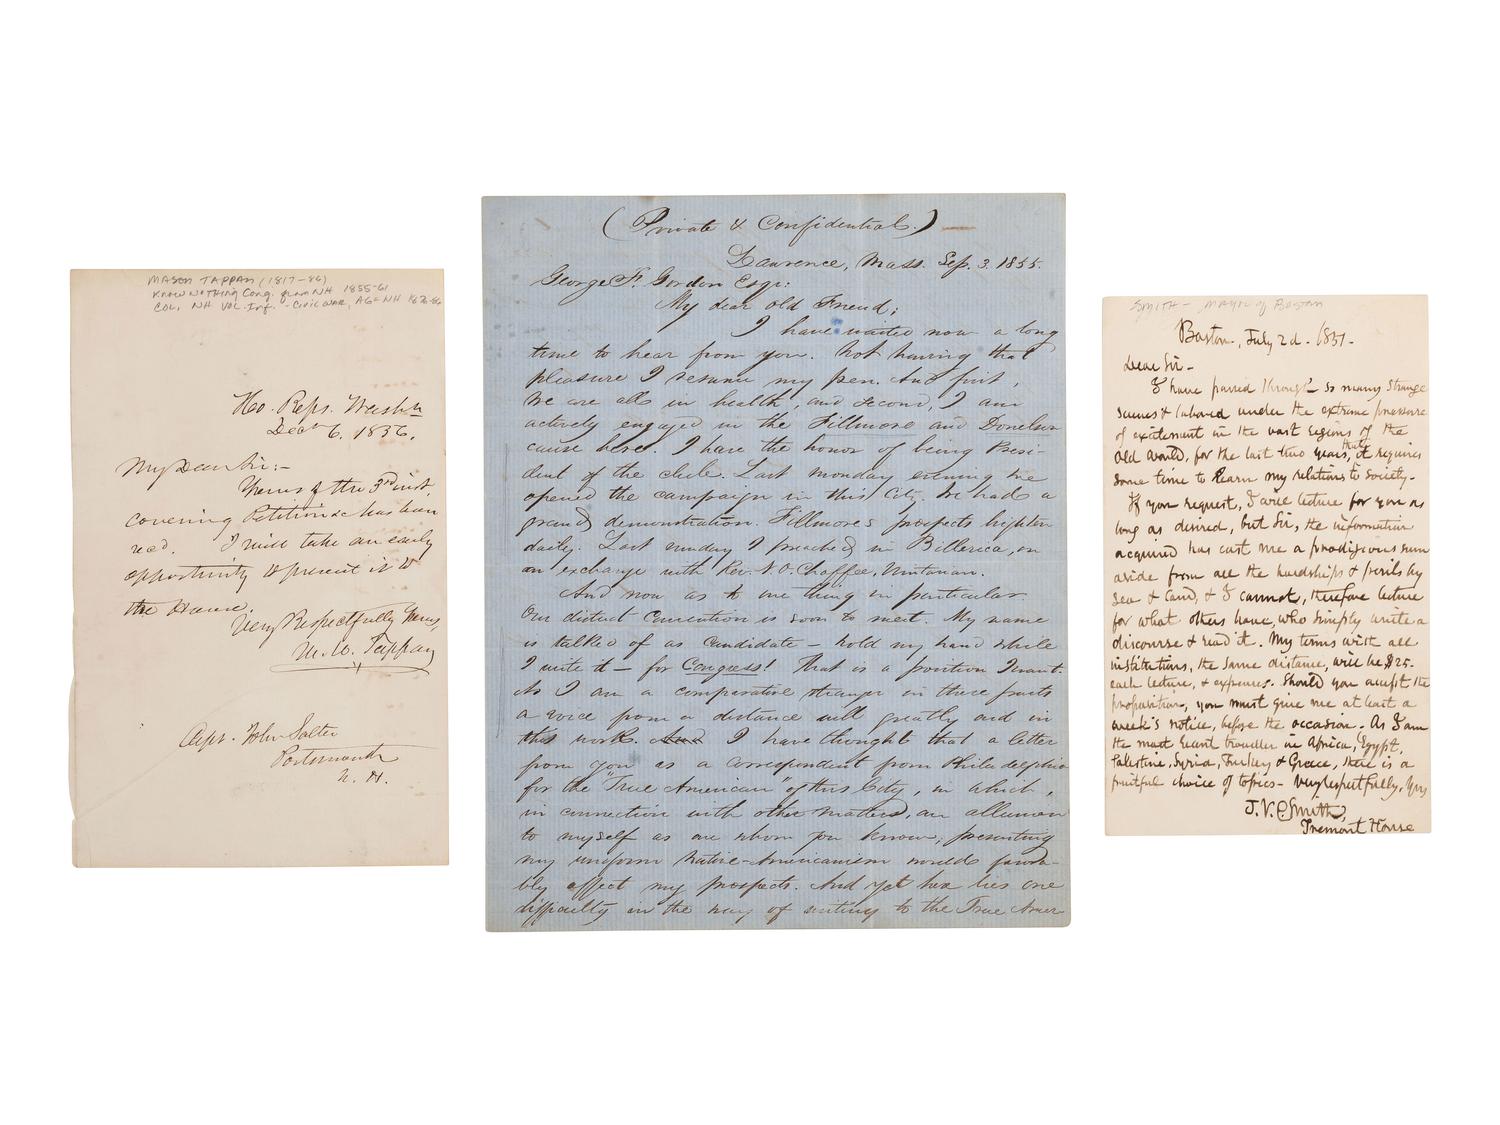 MASON TAPPAN (1817-86)
KNOW NOTHING Cong. from NH 1855-61
COL. NH VOL. Inf. - Civil War, AG = NH 1876-86
Ho. Reps. Washn
Decr 6. 1856.
My Dear Sir:-
Yours of the 3rd inst.
covering Petition &c has been
recd. I will take an early
opportunity to present it to
the House.
Very Respectfully Yours,
M. W. Tappan
Capt. John Salter
Portsmouth
N. H.
(Private & Confidential.)
Lawrence, Mass. Sep. 3. 1855.
George F. Gordon Esqr:
My dear old Friend;
I have waited now a long
time to hear from you. Not having that
pleasure I resume my pen. And first,
we are all in health, and second, I am
actively engaged in the Fillmore and Donelson
cause here. I have the honor of being Presi-
dent of the club. Last monday evening we
opened the campaign in this City. We had a
grand demonstration. Fillmores prospects brighten
daily. Last sunday I preached in Billerica, on
an exchange with Rev. N. O. Chaffee, Unitarian.
And now as to one thing in particular
Our district Convention is soon to meet. My name
is talked of as candidate - hold my hand while
I write it - for Congress! That is a position I want.
As I am a comparative stranger in these parts
a voice from a distance will greatly aid in
this work. And I have thought that a letter
from you as a correspondent from Philadelphia
for the "True American" of this City, in which,
in connection with other matters, an allusion
to myself as one whom you know, presenting
my uniform Native-Americanism would favora-
bly affect my prospects. And yet here lies one
difficulty in the way of writing to the True Amer
SMITH - Mayor of Boston
Boston, July 2d. 1851.
Dear Sir-
I have passed through so many strange
scenes & labored under the extreme pressure
of excitement in the vast regions of the
old world, for the last two years, that it requires
some time to learn my relations to society.
If you request, I will lecture for you as
long as desired, but Sir, the information
acquired has cost me a prodigious sum
aside from all the hardships & perils by
sea & land, & I cannot, therefore lecture
for what others have, who simply write a
discourse & read it. My terms with all
institutions, the same distance, will be $25.
each lecture, & expenses. Should you accept the
proposition, you must give me at least a
week's notice, before the occasion. As I am
the most recent traveller in Africa, Egypt,
Palestine, Syria, Turkey & Greece, there is a
fruitful choice of topics - Very respectfully, Yours
J. V. C. Smith,
Tremont House